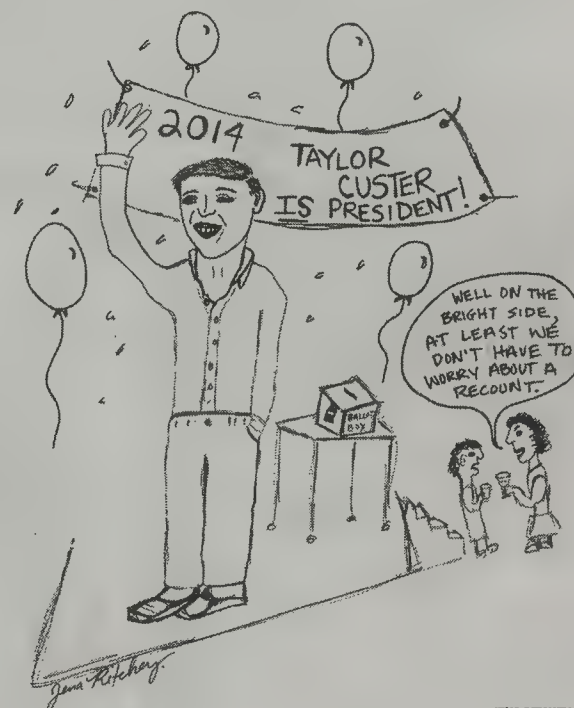 2014
TAYLOR
CUSTER
IS PRESIDENT!
WELL ON THE
BRIGHT SIDE,
AT LEAST WE
DON'T HAVE TO
WORRY ABOUT A
RECOUNT.
BALLOT
BOX
Jena Ritchey.